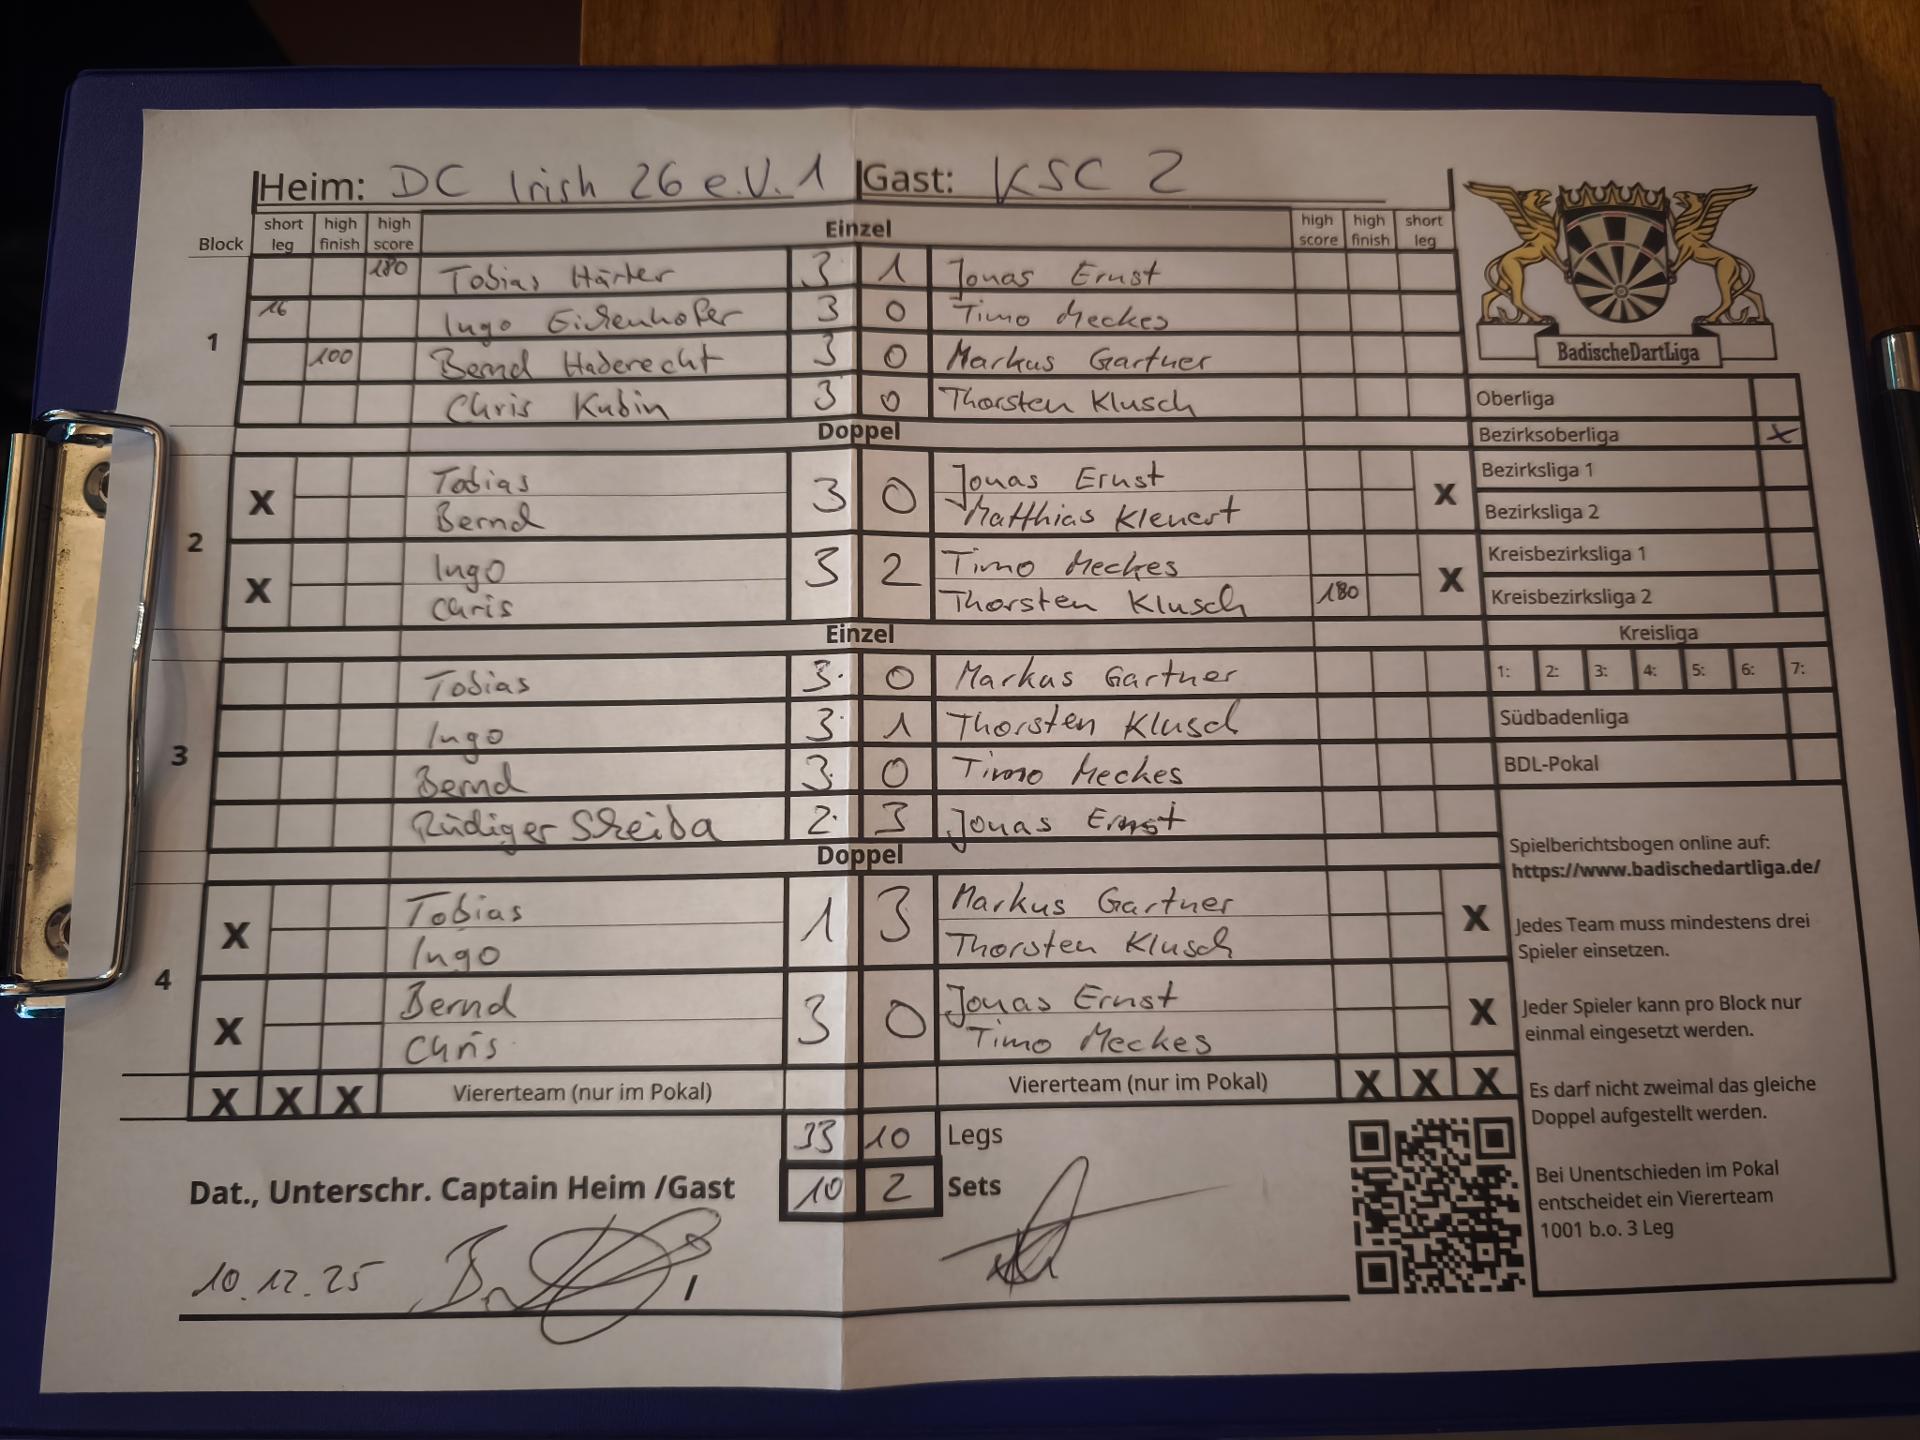 Heim: DC Irish 26 e.V. 1 Gast: KSC 2
Block short leg high finish high score Einzel high score high finish short leg
180 Tobias Härter 3 1 Jonas Ernst
16 Ingo Eichenhofer 3 0 Timo Meckes
1
100 Bernd Haderecht 3 0 Markus Gartner
Chris Kubin 3 0 Thorsten Klusch
Doppel
X Tobias 3 0 Jonas Ernst X
Bernd Matthias Klenert
2
X Ingo 3 2 Timo Meckes X
Chris Thorsten Klusch 180
Einzel
Tobias 3 0 Markus Gartner
Ingo 3 1 Thorsten Klusch
3
Bernd 3 0 Timo Meckes
Rüdiger 2 3 Jonas Ernst
Doppel
X Tobias 1 3 Markus Gartner X
Ingo Thorsten Klusch
4
X Bernd 3 0 Jonas Ernst X
Chris Timo Meckes
X X X Viererteam (nur im Pokal) Viererteam (nur im Pokal) X X X
33 10 Legs
10 2 Sets
Dat., Unterschr. Captain Heim /Gast
10.12.25
BadischeDartLiga
Oberliga
Bezirksoberliga x
Bezirksliga 1
Bezirksliga 2
Kreisbezirksliga 1
Kreisbezirksliga 2
Kreisliga
1: 2: 3: 4: 5: 6: 7:
Südbadenliga
BDL-Pokal
Spielberichtsbogen online auf:
https://www.badischedartliga.de/
Jedes Team muss mindestens drei
Spieler einsetzen.
Jeder Spieler kann pro Block nur
einmal eingesetzt werden.
Es darf nicht zweimal das gleiche
Doppel aufgestellt werden.
Bei Unentschieden im Pokal
entscheidet ein Viererteam
1001 b.o. 3 Leg